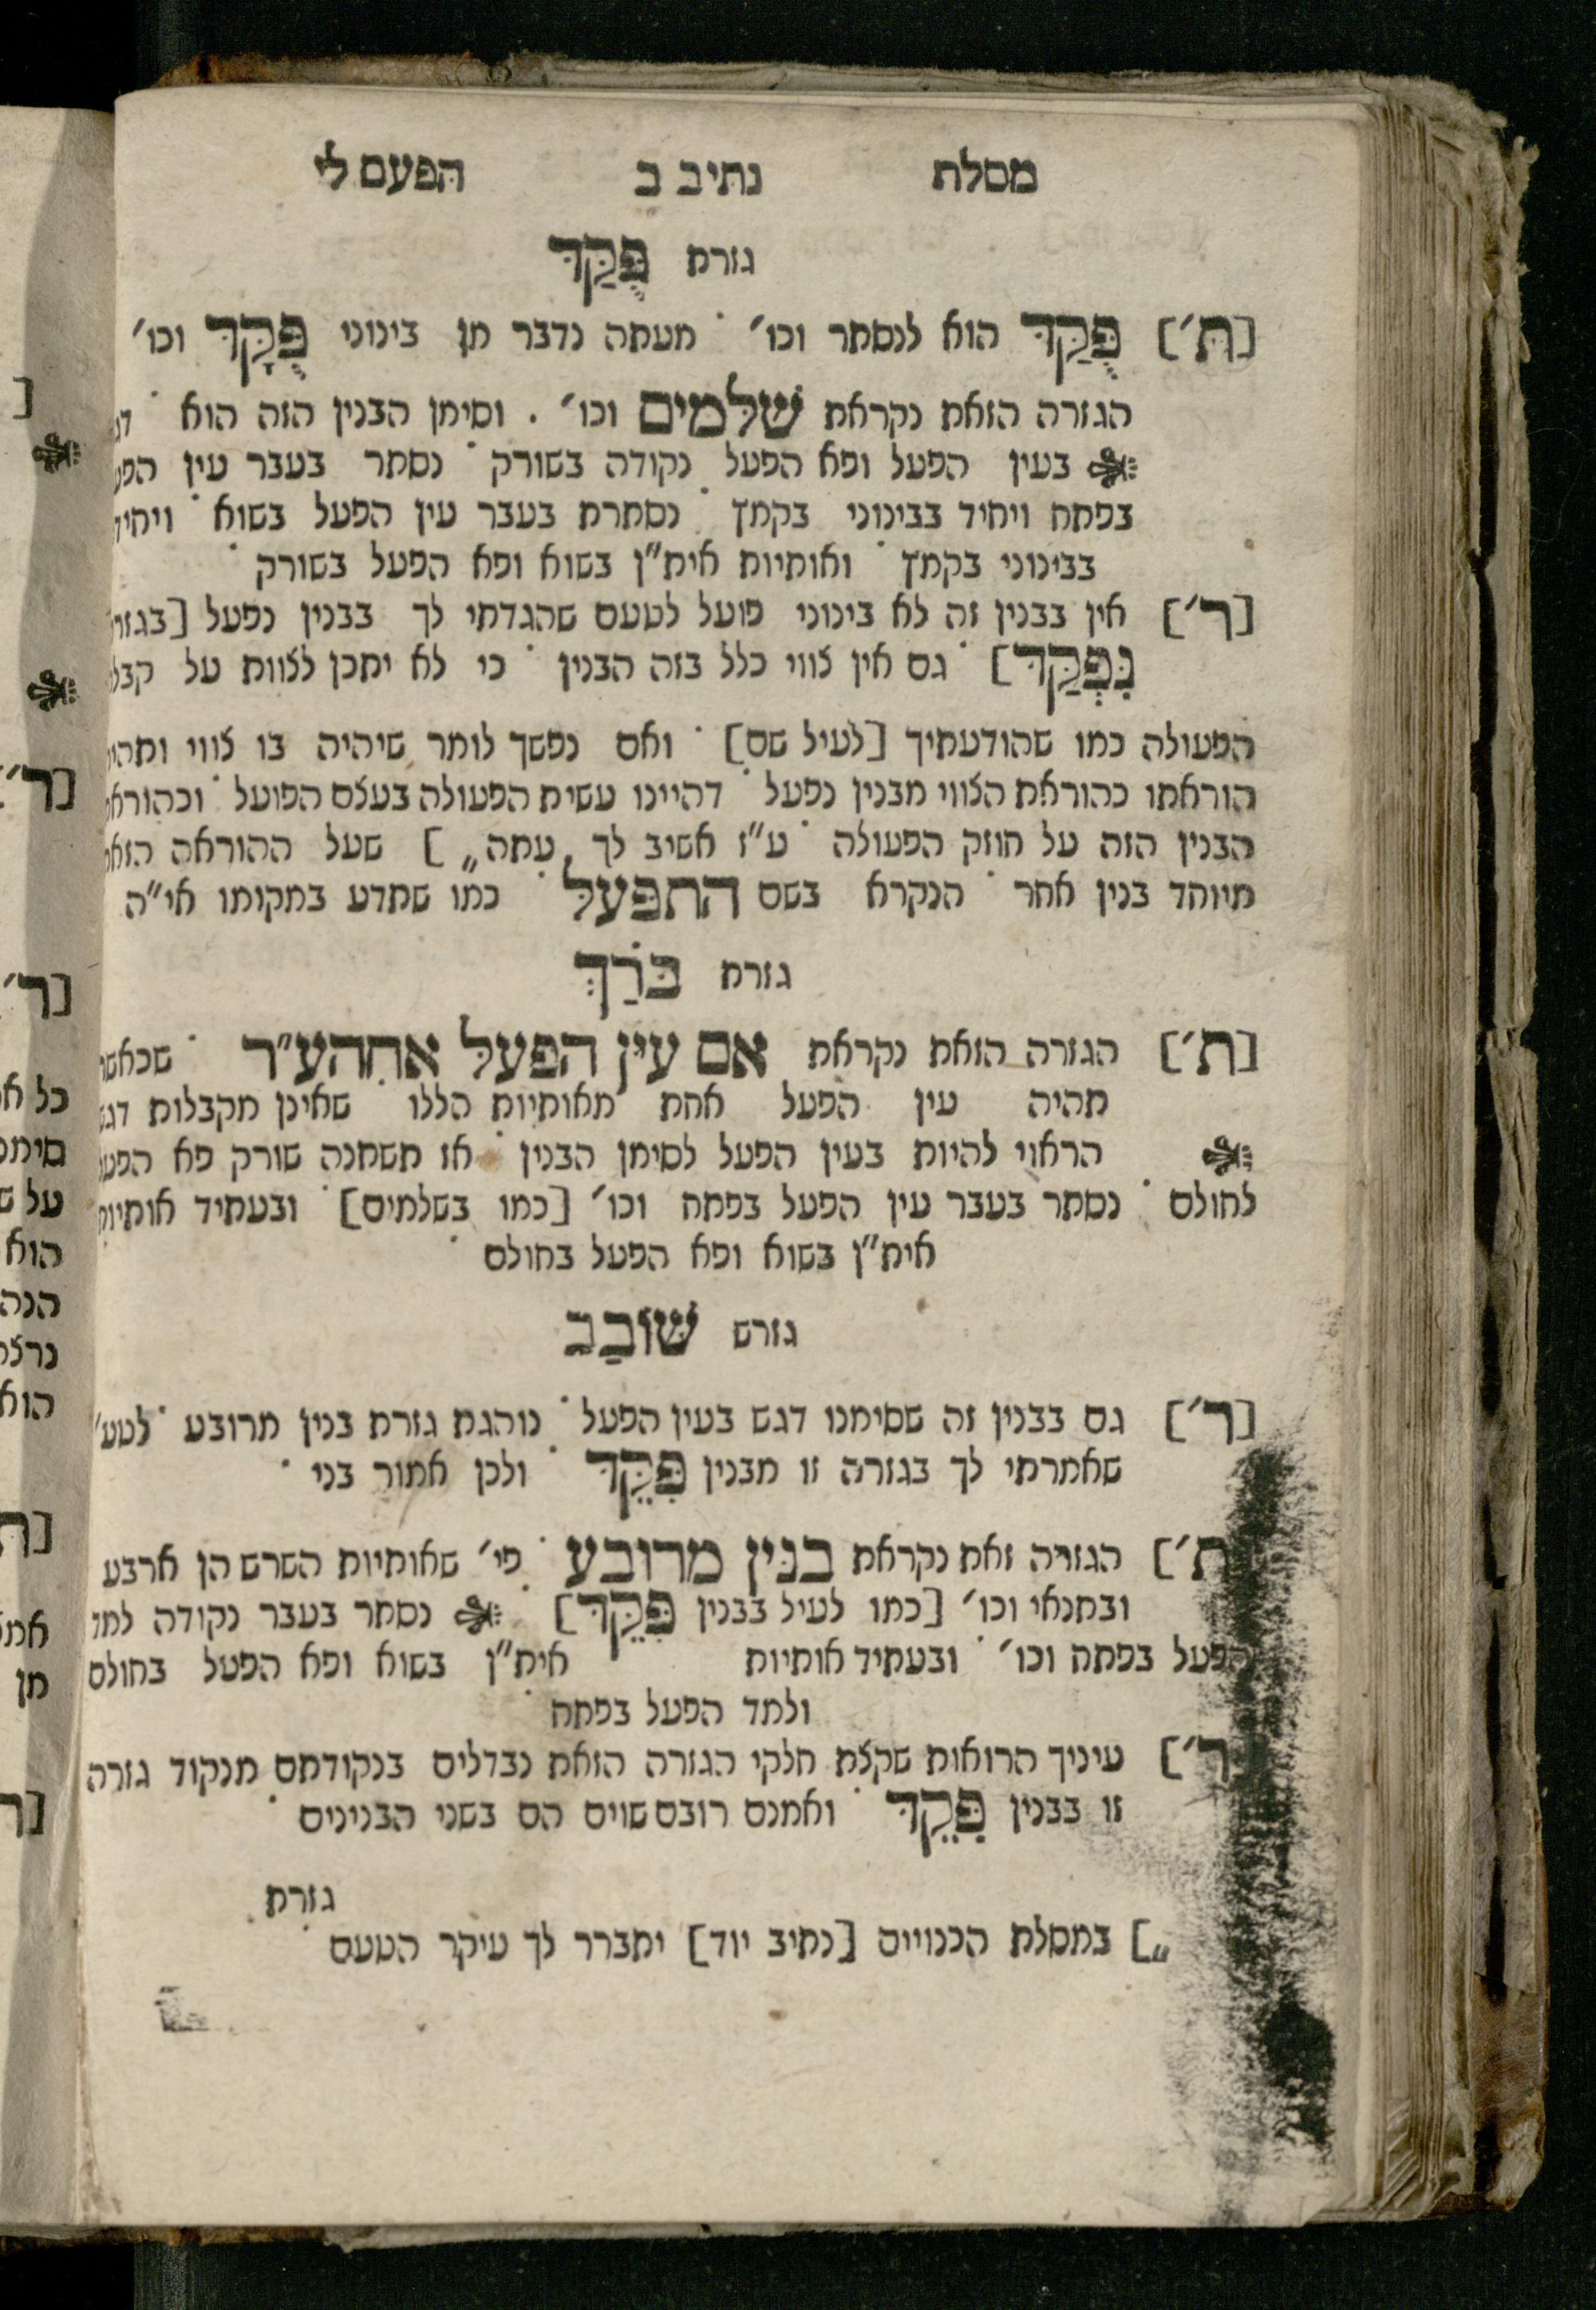 מסלת נתיב ב הפעם לי
גזרת פֻּקַּד
[ת׳] פֻּקַּד הוא לנסתר וכו׳ ˙ מעתה נדבר מן בינוני פֻּקָּד וכו׳
הגזרה הזאת נקראת שלמים וכו׳ . וסימן הבנין הזה הוא ˙
בעין הפעל ופא הפעל נקודה בשורק ˙ נסתר בעבר עין
בפתח ויחיד בבינוני בקמץ ˙ נסתרת בעבר עין הפעל בשוא ˙
בבינוני בקמץ ˙ ואותיות אית״ן בשוא ופא הפעל בשורק ˙
[ר׳] אין בבנין זה לא בינוני פועל לטעם שהגדתי לך בבנין נפעל
נִפְקַד] ˙ גם אין צווי כלל בזה הבנין ˙ כי לא יתכן לצוות על
הפעולה כמו שהודעתיך [לעיל שם] ˙ ואם נפשך לומר שיהיה בו צווי
הוראתו כהוראת הצווי מבנין נפעל ˙ דהיינו עשית הפעולה בעצם הפועל ˙
הבנין הזה על חוזק הפעולה ˙ ע״ז אשיב לך עתה „] שעל ההוראה
מיוחד בנין אחר ˙ הנקרא בשם התפעל ˙ כמו שתדע במקומו אי״ה
גזרת בֹּרַךְ
[ת׳] הגזרה הזאת נקראת אם עין הפעל אחהע״ר ˙
תהיה עין הפעל אחת מאותיות הללו שאינן מקבלות
הראוי להיות בעין הפעל לסימן הבנין ˙ אז תשתנה שורק פא
לחולם ˙ נסתר בעבר עין הפעל בפתח וכו׳ [כמו בשלמים] ˙ ובעתיד
אית״ן בשוא ופא הפעל בחולם ˙
גזרש שׁוֹבַב
[ר׳] גם בבנין זה שסימנו דגש בעין הפעל ˙ נוהגת גזרת בנין מרובע ˙ לטע׳
שאמרתי לך בגזרה זו מבנין פִּקֵּד ˙ ולכן אמור בני ˙
ת׳] הגזרה זאת נקראת בנין מרובע ˙ פי׳ שאותיות השרש הן ארבע
ובתנאי וכו׳ [כמו לעיל בבנין פִּקֵּד] ˙ נסתר בעבר נקודה למד
הפעל בפתח וכו׳ ˙ ובעתיד אותיות אית״ן בשוא ופא הפעל בחולם
ולמד הפעל בפתח ˙
ר׳] עיניך הרואות שקצת חלקי הגזרה הזאת נבדלים בנקודתם מנקוד גזרה
זו בבנין פִּקֵּד ˙ ואמנם רובם שוים הם בשני הבנינים ˙
גזרת
„] במסלת הכנויים [נתיב יוד] יתברר לך עיקר הטעם ˙